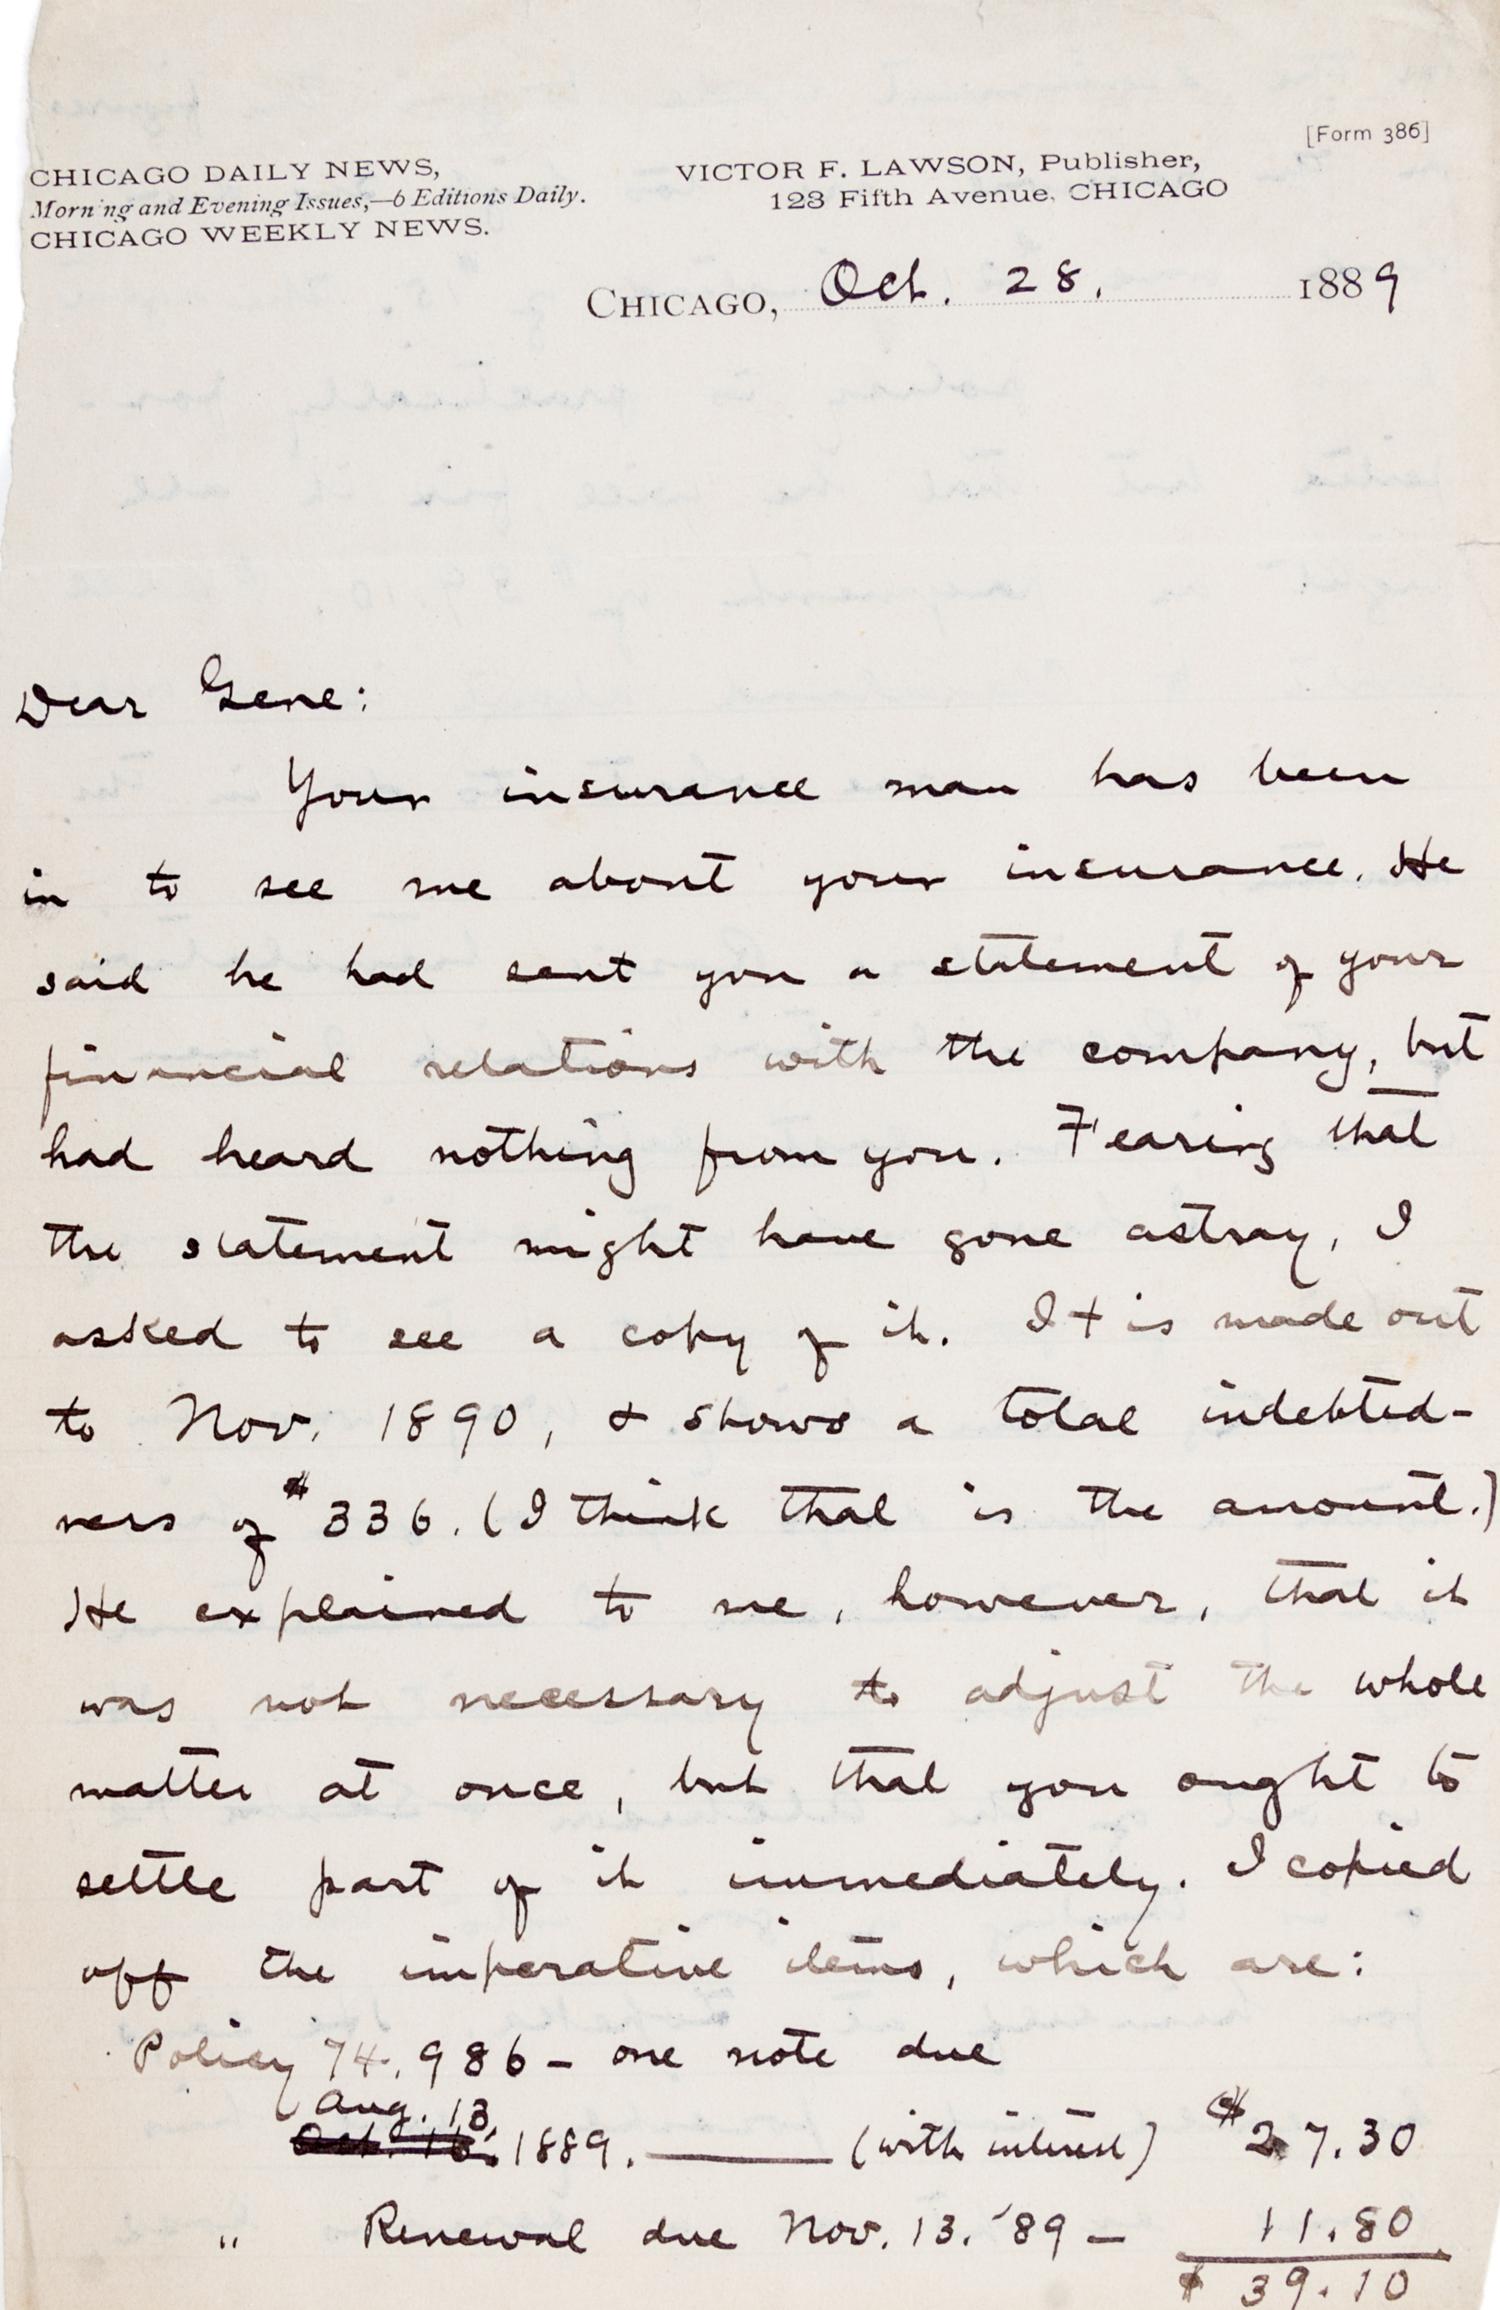 [Form 386]
CHICAGO DAILY NEWS,
Morning and Evening Issues,—6 Editions Daily.
CHICAGO WEEKLY NEWS.
VICTOR F. LAWSON, Publisher,
123 Fifth Avenue, CHICAGO
CHICAGO, Oct. 28. 1889
Dear Gene:
Your insurance man has been
in to see me about your insurance. He
said he had sent you a statement of your
financial relations with the company, but
had heard nothing from you. Fearing that
the statement might have gone astray, I
asked to see a copy of it. It is made out
to Nov. 1890, & shows a total indebted-
ness of $336. (I think that is the amount.)
He explained to me, however, that it
was not necessary to adjust the whole
matter at once, but that you ought to
settle part of it immediately. I copied
off the imperative items, which are:
Policy 74,986 — one note due
Aug. 13,
1889. —— (with interest) $27.30
" Renewal due Nov. 13. '89 — 11.80
$39.10